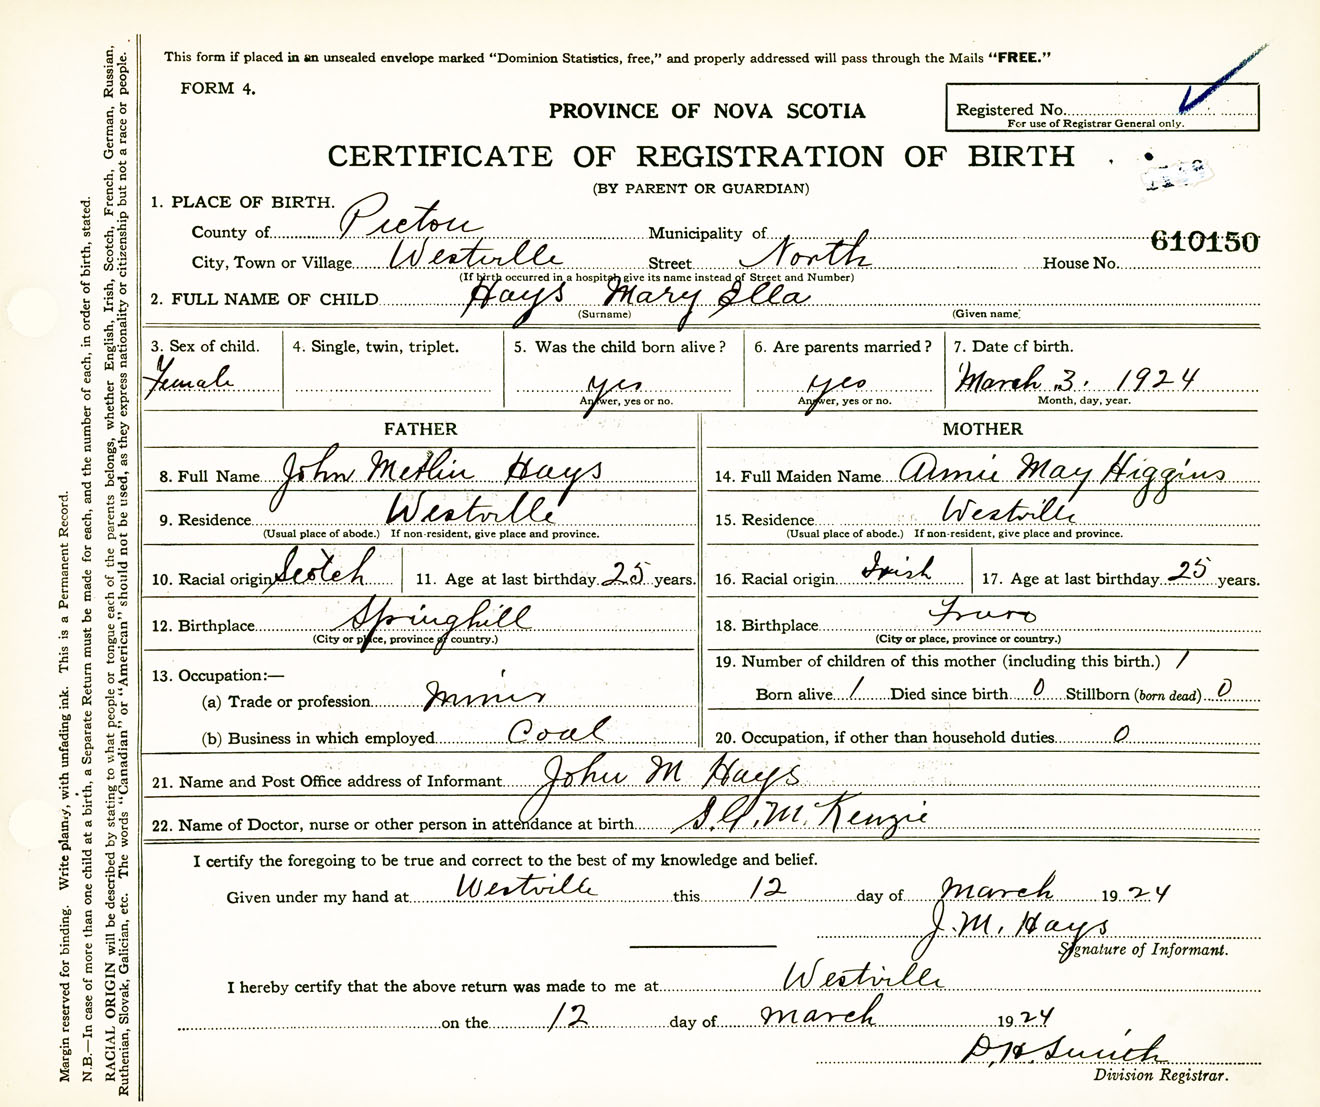 This form if placed in an unsealed envelope marked "Dominion Statistics, free," and properly addressed will pass through the Mails "FREE."
FORM 4.
PROVINCE OF NOVA SCOTIA
Registered No.
For use of Registrar General only.
CERTIFICATE OF REGISTRATION OF BIRTH
(BY PARENT OR GUARDIAN)
1. PLACE OF BIRTH.
County of Pictou Municipality of
610150
City, Town or Village Westville Street North House No.
(If birth occurred in a hospital give its name instead of Street and Number)
2. FULL NAME OF CHILD Hays Mary Ella
(Surname) (Given name)
3. Sex of child. 4. Single, twin, triplet. 5. Was the child born alive? 6. Are parents married? 7. Date of birth.
Female yes yes March 3. 1924
Answer, yes or no. Answer, yes or no. Month, day, year.
FATHER
8. Full Name John Merlin Hays
9. Residence Westville
(Usual place of abode.) If non-resident, give place and province.
10. Racial origin Scotch 11. Age at last birthday 25 years.
12. Birthplace Springhill
(City or place, province or country.)
13. Occupation:—
(a) Trade or profession Miner
(b) Business in which employed Coal
MOTHER
14. Full Maiden Name Annie May Higgins
15. Residence Westville
(Usual place of abode.) If non-resident, give place and province.
16. Racial origin Irish 17. Age at last birthday 25 years.
18. Birthplace Truro
(City or place, province or country.)
19. Number of children of this mother (including this birth.) 1
Born alive 1 Died since birth 0 Stillborn (born dead) 0
20. Occupation, if other than household duties 0
21. Name and Post Office address of Informant John M Hays
22. Name of Doctor, nurse or other person in attendance at birth S. G. McKenzie
I certify the foregoing to be true and correct to the best of my knowledge and belief.
Given under my hand at Westville this 12 day of March 1924
J. M. Hays
Signature of Informant.
I hereby certify that the above return was made to me at Westville
on the 12 day of March 1924
D. H. Smith
Division Registrar.
Margin reserved for binding. Write plainly, with unfading ink. This is a Permanent Record.
N.B.—In case of more than one child at a birth, a Separate Return must be made for each, and the number of each, in order of birth, stated.
RACIAL ORIGIN will be described by stating to what people or tongue each of the parents belongs, whether English, Irish, Scotch, French, German, Russian,
Ruthenian, Slovak, Galician, etc. The words "Canadian" or "American" should not be used, as they express nationality or citizenship but not a race or people.